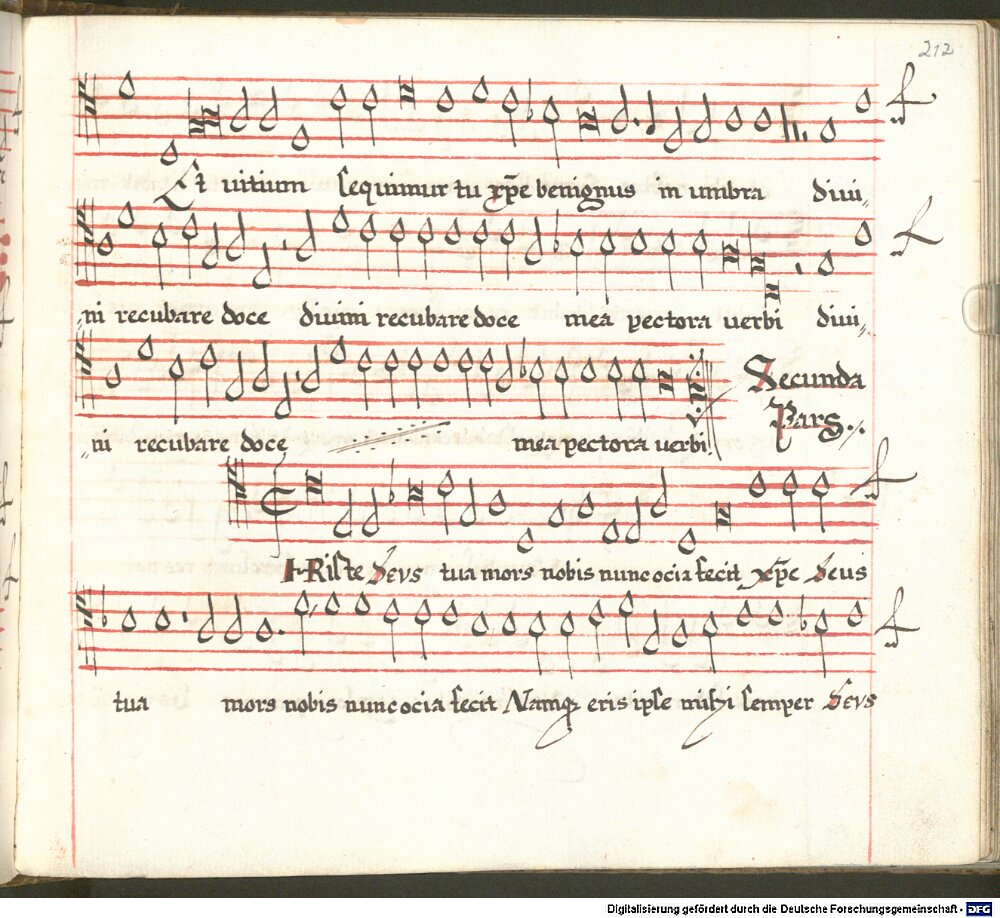 212
Et uitium sequimur tu xp̄e benignus in umbra diui„
„ni recubare doce diuini recubare doce mea pectora uerbi diui„
„ni recubare doce mea pectora uerbi
Secunda
Pars.
HRiste Deus tua mors nobis nunc ocia fecit xp̄e Deus
tua mors nobis nunc ocia fecit Namq eris ipse mihi semper Deus
Digitalisierung gefördert durch die Deutsche Forschungsgemeinschaft - DFG